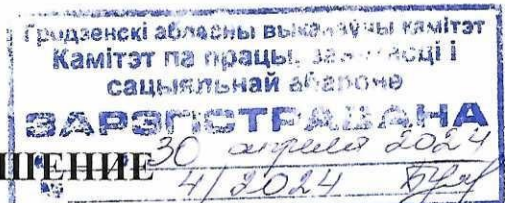 Гродзенскі абласны выканаўчы камітэт
Камітэт па працы, занятасці і
сацыяльнай абароне
ЗАРЭГІСТРАВАНА
30 апреля 2024
ШЕНИЕ 4/2024